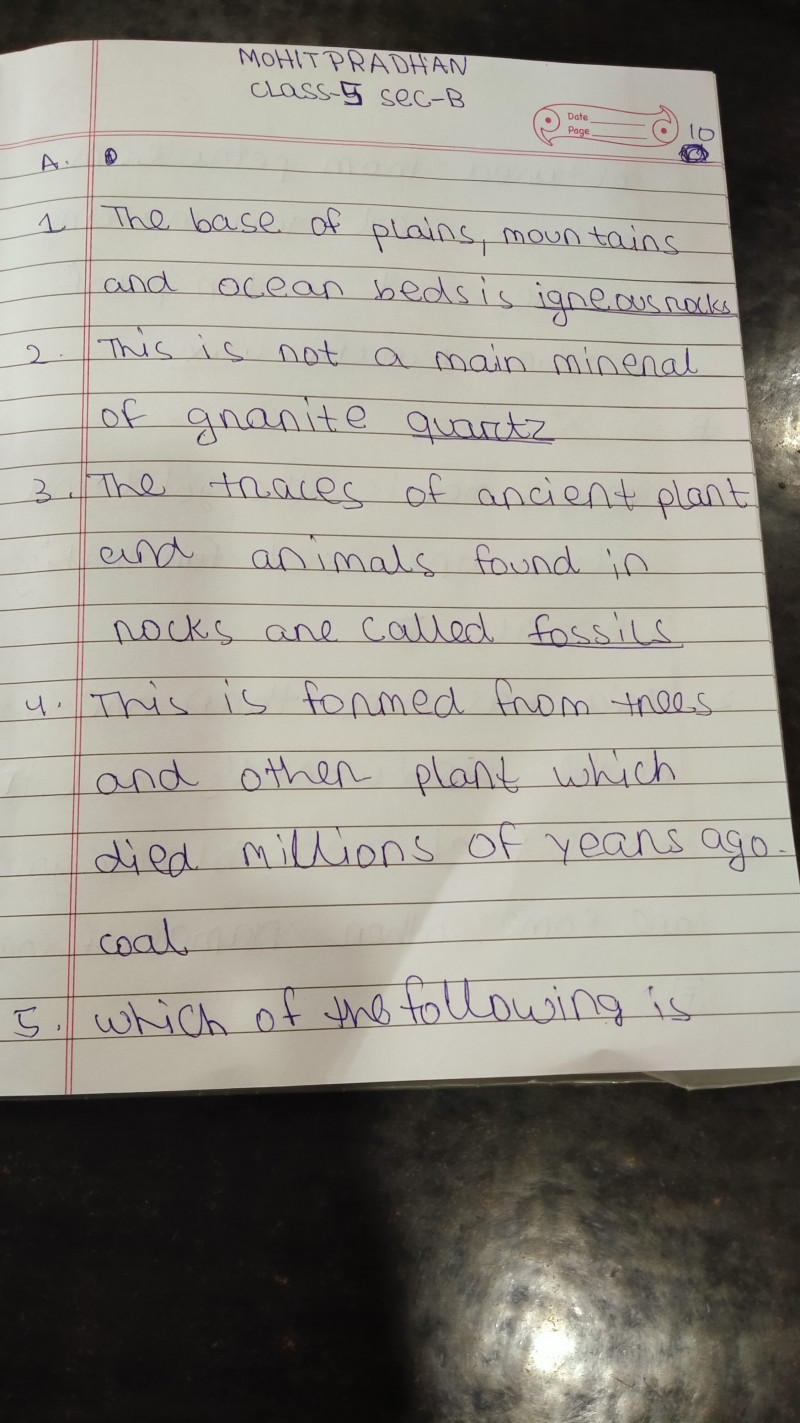 MOHIT PRADHAN
CLASS-5 SEC-B
Date
Page
10
A.
1 The base of plains, mountains
and ocean beds is igneous rocks
2. This is not a main mineral
of granite quartz
3. The traces of ancient plant
and animals found in
rocks are called fossils
4. This is formed from trees
and other plant which
died millions of years ago.
coal
5. which of the following is